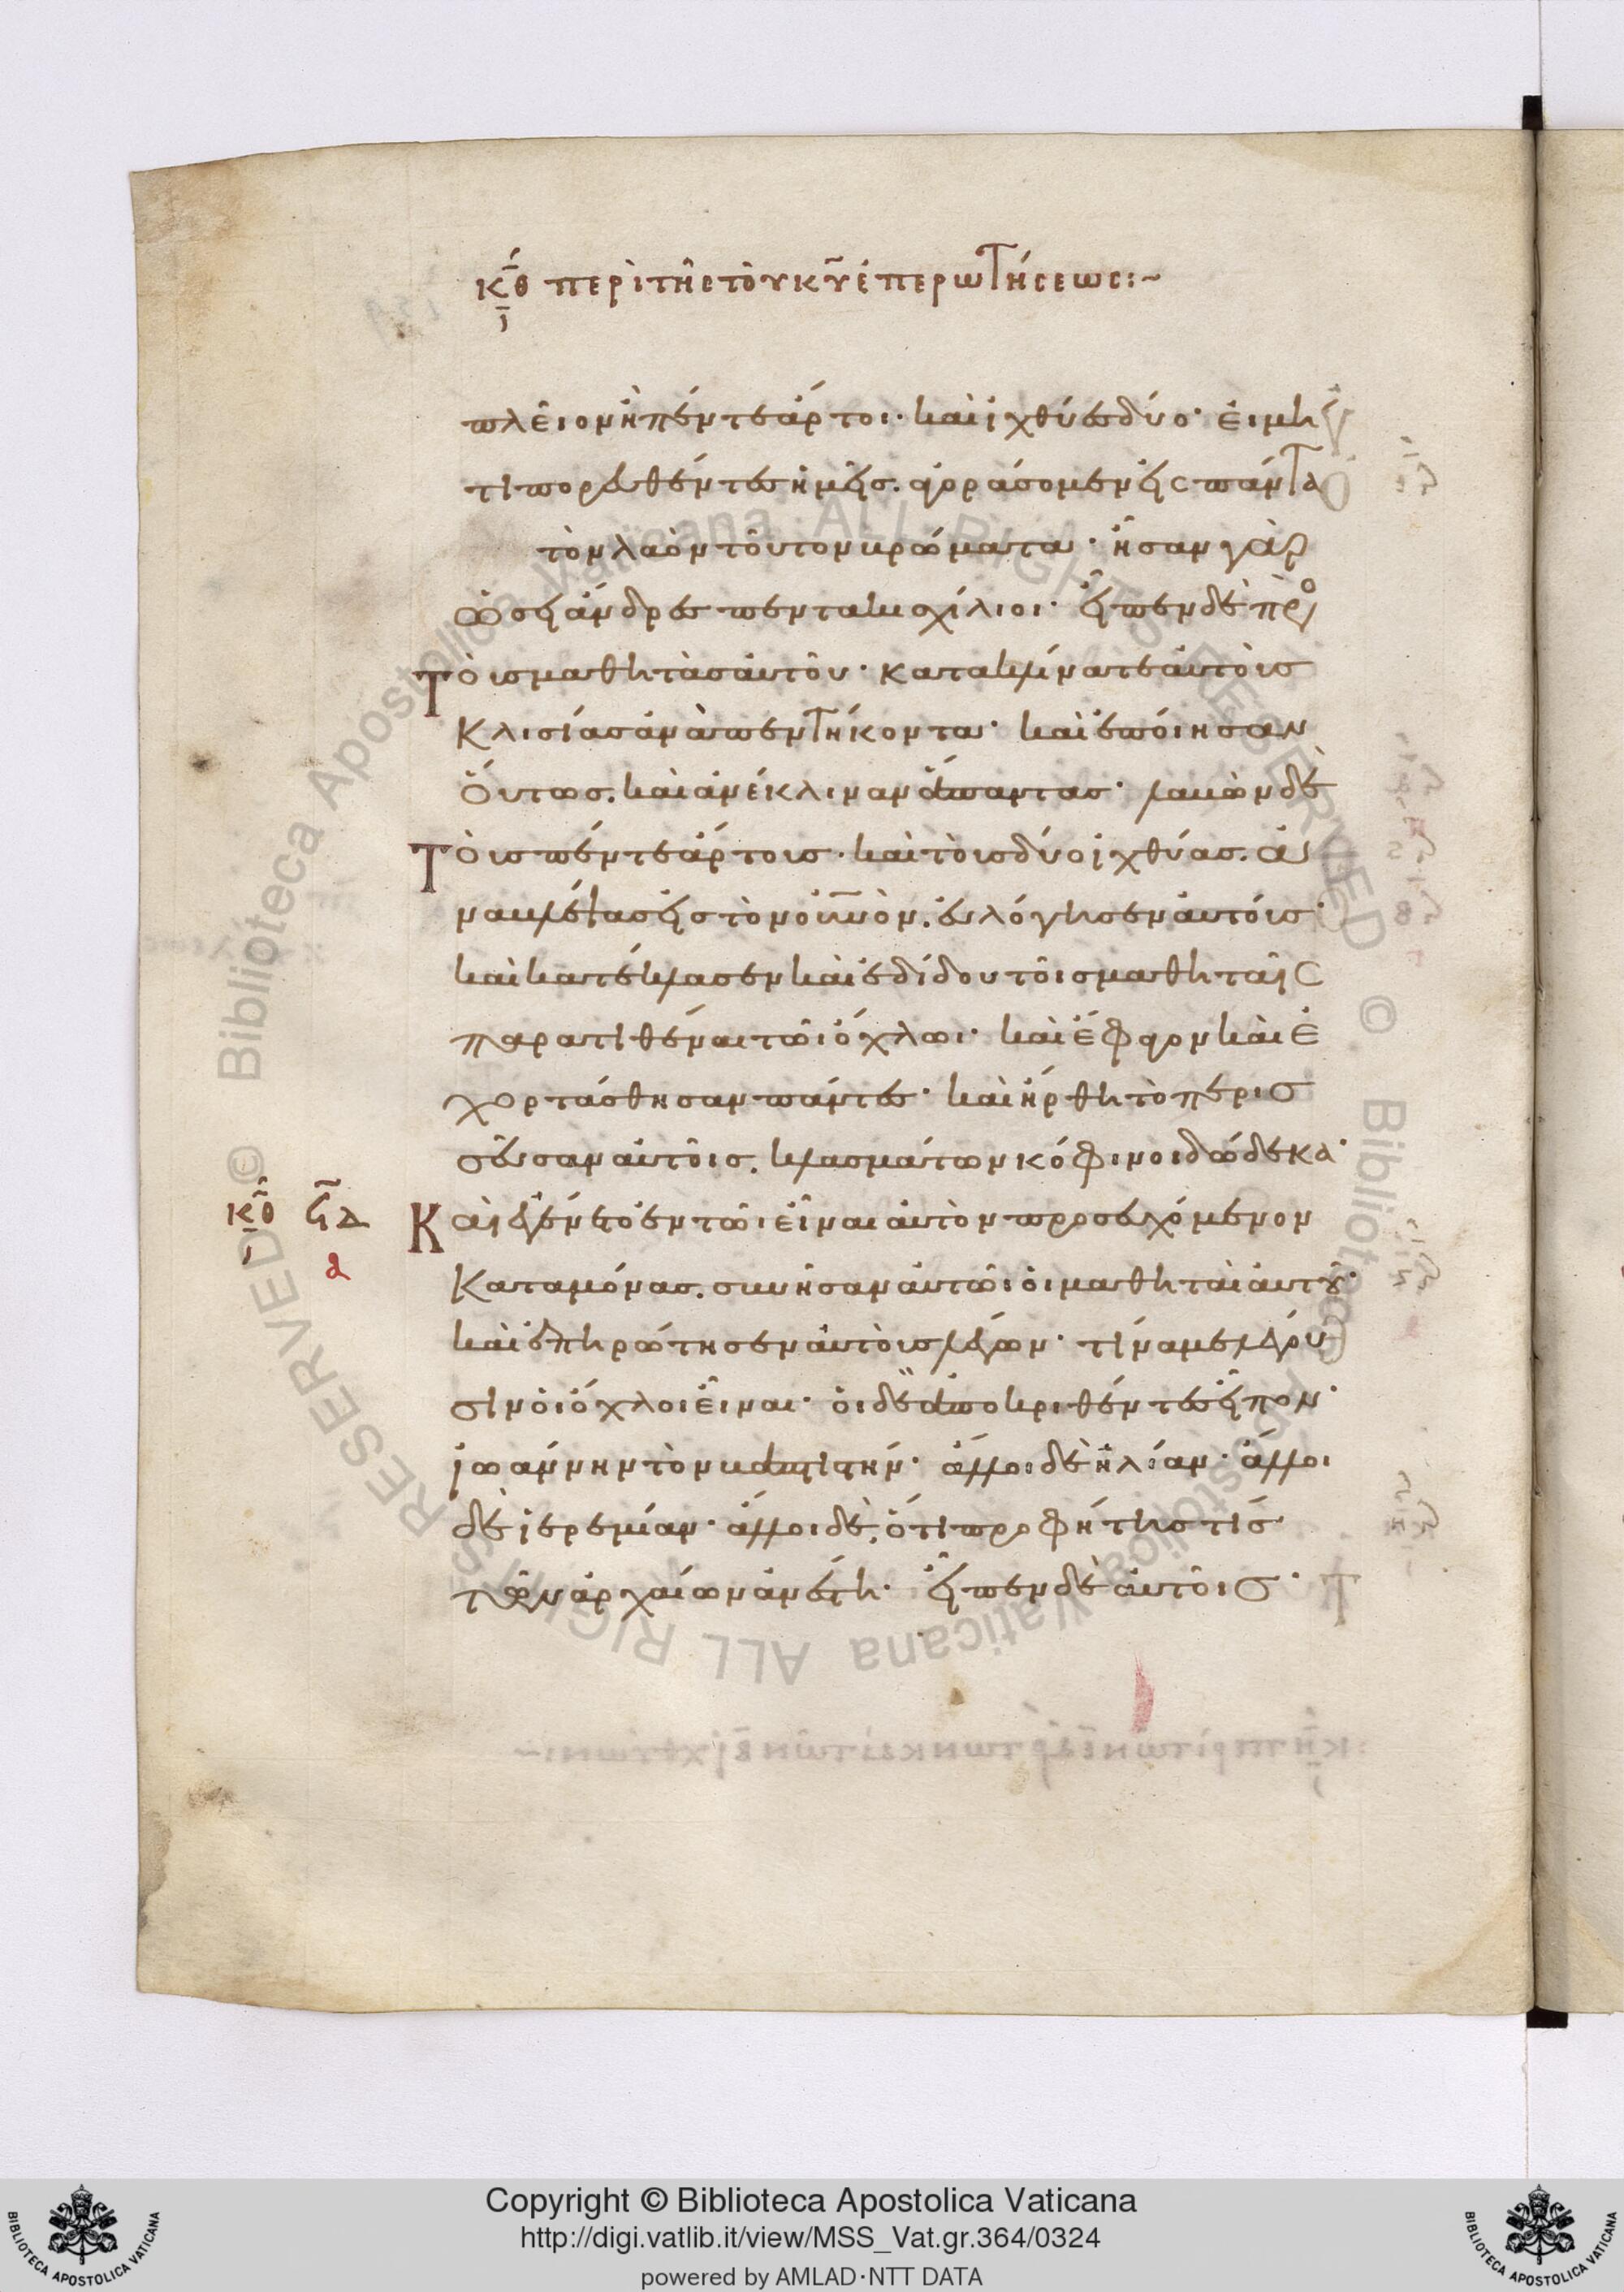 κ̅θ̅ περὶ τῆς τοῦ κ̅υ̅ ἐπερωτήσεως:~
πλεῖον ἢ πέντε ἄρτοι· καὶ ἰχθύες δύο· εἰ μή
τι πορευθέντες ἡμεῖς. ἀγοράσομεν εἰς πάντα
τὸν λαὸν τοῦτον βρώματα· ἦσαν γὰρ
ὡσεὶ ἄνδρες πεντακισχίλιοι· εἶπεν δὲ πρὸς
Τοὺς μαθητὰς αὐτοῦ· κατακλίνατε αὐτοὺς
κλισίας ἀνὰ πεντήκοντα· καὶ ἐποίησαν
οὕτως. καὶ ἀνέκλιναν ἅπαντας· λαβὼν δὲ
Τοὺς πέντε ἄρτους· καὶ τοὺς δύο ἰχθύας. ἀ
ναβλέψας εἰς τὸν ο̅υ̅ν̅ὸν. εὐλόγησεν αὐτούς·
καὶ κατέκλασεν καὶ ἐδίδου τοῖς μαθηταῖς
παρατιθέναι τῶι ὄχλωι· καὶ ἔφαγον καὶ ἐ
χορτάσθησαν πάντες· καὶ ἤρθη τὸ περισ
σεῦσαν αὐτοῖς. κλασμάτων κόφινοι δώδεκα·
κ̅θ̅ ϟ̅δ̅ Καὶ ἐγένετο ἐν τῶι εἶναι αὐτὸν προσευχόμενον
α
καταμόνας. συνῆσαν αὐτῶι οἱ μαθηταὶ αὐτοῦ·
καὶ ἐπηρώτησεν αὐτοὺς λέγων· τίνα με λέγου
σιν οἱ ὄχλοι εἶναι· οἱ δὲ ἀποκριθέντες εἶπον·
ἰωάννην τὸν βαπτιστήν· ἄλλοι δὲ ἠλίαν· ἄλλοι
δὲ ἰερεμίαν· ἄλλοι δὲ, ὅτι προφήτης τίς
τῶν ἀρχαίων ἀνέστη· εἶπεν δὲ αὐτοῖς·
Copyright © Biblioteca Apostolica Vaticana
http://digi.vatlib.it/view/MSS_Vat.gr.364/0324
powered by AMLAD·NTT DATA
BIBLIOTECA APOSTOLICA VATICANA
BIBLIOTECA APOSTOLICA VATICANA
© Biblioteca Apostolica Vaticana ALL RIGHTS RESERVED © Biblioteca Apostolica Vaticana ALL RIGHTS RESERVED